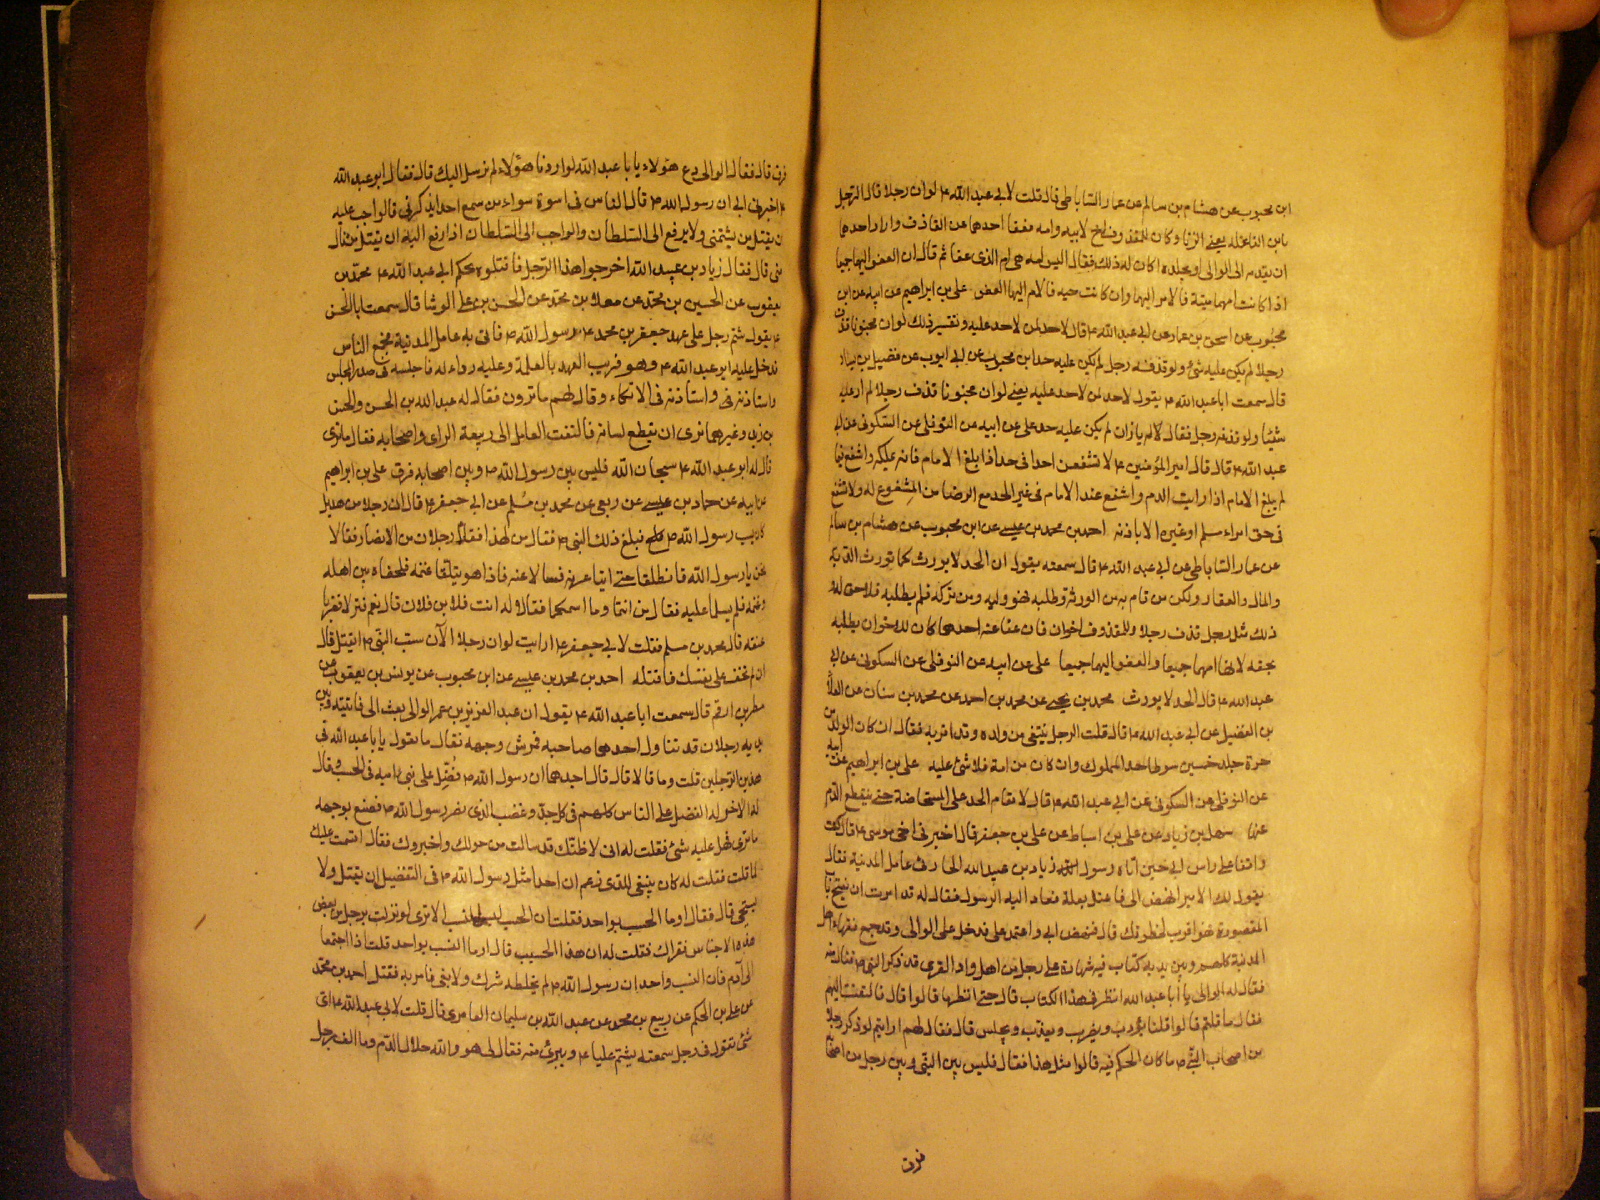 ابن محبوب عن هشام بن سالم عن عمار الساباطي قال قلت لابي عبد الله ع لوان رجلا قال لرجل
يابن الفاعلة يعني الزنا وكان للمقذوف اخ لابيه وامه فعفا احدهما عن القاذف واراد احدهما
ان يقدمه الى الوالي ويجلده اكان له ذلك فقال اليس امه هي ام الذي عفا ثم قال ان العفو اليهما جميعا
اذا كانت امهما ميتة فالامر اليهما وان كانت حية فالامر اليها العفو علي بن ابراهيم عن ابيه عن ابن
محبوب عن اسحق بن عمار عن ابي عبد الله ع قال لاحد لمن لاحد عليه وتفسير ذلك لوان مجنونا قذف
رجلا لم يكن عليه شئ ولو قذفه رجل لم يكن عليه حد ابن محبوب عن ابي ايوب عن فضيل بن يسار
قال سمعت ابا عبد الله ع يقول لاحد لمن لاحد عليه يعني لوان مجنونا قذف رجلا لم ار عليه
شيئا ولو قذفه رجل فقال له يا زان لم يكن عليه حد علي عن ابيه عن النوفلي عن السكوني عن ابي
عبد الله ع قال قال امير المؤمنين ع لا تشفعن احدا في حد اذا بلغ الامام فانه يملكه واشفع فيما
لم يبلغ الامام اذا رايت الدم واشفع عند الامام في غير الحد مع الرضا من المشفوع له ولا تشفع
في حق امراء مسلم او غيره الا باذنه احمد بن محمد بن عيسى عن ابن محبوب عن هشام بن سالم
عن عمار الساباطي عن ابي عبد الله ع قال سمعته يقول ان الحد لا يورث كما تورث الدية
والمال والعقار ولكن من قام به من الورثة وطلبه فهو وليه ومن تركه فلم يطلبه فلا حق له
ذلك مثل رجل قذف رجلا وللمقذوف اخوان فان عفا عنه احدهما كان للاخران يطلبه
بحقه لانها امهما جميعا والعفو اليهما جميعا علي عن ابيه عن النوفلي عن السكوني عن ابي
عبد الله ع قال الحد لا يورث محمد بن يحيى عن محمد بن احمد عن محمد بن سنان عن العلا
بن الفضيل عن ابي عبد الله ع قال قلت الرجل ينتفي من ولده وقد اقر به فقال ان كان الولد من
حرة جلد خمسين سوطا حد المملوك وان كان من امة فلا شئ عليه علي بن ابراهيم عن ابيه
عن النوفلي عن السكوني عن ابي عبد الله ع قال لا يقام الحد على المستحاضة حتى ينقطع الدم
عنها سهل بن زياد عن علي بن اسباط عن علي بن جعفر قال اخبرني اخي موسى ع قال كنت
واقفا على راس ابي حين اتاه رسول زياد بن عبيد الله الحارثي عامل المدينة فقال
يقول لك الامير انهض الي فاعتل بعلة فعاد اليه الرسول فقال له قد امرت ان يفتح باب
المقصورة فهو اقرب لخطوتك قال فنهض ابي واعتمد علي فدخل على الوالي وقد جمع فقهاء اهل
المدينة كلهم وبين يديه كتاب فيه شهادة على رجل من اهل واد القرى قد ذكر النبي ص فنال منه
فقال له الوالي يا ابا عبد الله انظر في هذا الكتاب قال حتى انظر ما قالوا قال فالتفت اليهم
فقال ما قلتم قالوا قلنا يؤدب ويضرب ويعذب ويحبس قال فقال لهم ارايتم لو ذكر رجلا
من اصحاب النبي ص ما كان الحكم فيه قالوا مثل هذا فقال فليس بين النبي وبين رجل من اصحابه
فرق
فرق قال فقال الوالي دع هؤلاء يا با عبد الله لو اردنا هؤلاء لم نرسل اليك قال فقال ابو عبد الله
ع اخبرني ابي ان رسول الله ص قال الناس في اسوة سواء من سمع احدا يذكرني فالواجب عليه
ان يقتل من يشتمني ولا يرفع الى السلطان والواجب الى السلطان اذا رفع اليه ان يقتل من نال
مني قال فقال زياد بن عبيد الله اخرجوا هذا الرجل فاقتلوه بحكم ابي عبد الله ع محمد بن
يعقوب عن الحسين بن محمد عن معلا بن محمد عن الحسن بن علي الوشا قال سمعت ابا الحسن
ع يقول شتم رجل على عهد جعفر بن محمد ع رسول الله ص فاتي به عامل المدينة فجمع الناس
فدخل عليه ابو عبد الله ع وهو قريب العهد بالعلة وعليه رداء له فاجلسه في صدر المجلس
واستاذنه في الاتكاء وقال لهم ما ترون فقال له عبد الله بن الحسن والحسن
بن زيد وغيرهما نرى ان يقطع لسانه فالتفت العامل الى ربيعة الراي واصحابه فقال ما ترى
قال له ابو عبد الله ع سبحان الله فليس بين رسول الله ص وبين اصحابه فرق علي بن ابراهيم
عن ابيه عن حماد بن عيسى عن ربعي عن محمد بن مسلم عن ابي جعفر ع قال ان رجلا من هذيل
كان يسب رسول الله ص فبلغ ذلك النبي ص فقال من لهذا فقام رجلان من الانصار فقالا
نحن يا رسول الله فانطلقا حتى اتيا عربة فسالا عنه فاذا هو يتلقا غنمه فلحقاه بين اهله
وغنمه فلم يسلما عليه فقال من انتما وما اسمكما فقالا له انت فلان بن فلان قال نعم فنزلا فضربا
عنقه قال محمد بن مسلم فقلت لابي جعفر ع ارايت لوان رجلا الآن سب النبي ص ايقتل قال
ان لم تخف على نفسك فاقتله احمد بن محمد بن عيسى عن ابن محبوب عن يونس بن يعقوب عن
مطر بن ارقم قال سمعت ابا عبد الله ع يقول ان عبد العزيز بن عمر الوالي بعث الي فاتيته وبين
بن يديه رجلان قد تناول احدهما صاحبه فمرش وجهه فقال ما تقول يا با عبد الله في
هذين الرجلين قلت وما قالا قال قال احدهما ان رسول الله ص فضل على بني امية في الحسب وقال
لاخر له الفضل على الناس كلهم في كل حد وغضب الذي نصر رسول الله ص فصنع بوجهه
ما ترى فهل عليه شئ فقلت له اني لاظنك قد سالت من حولك واخبروك فقال اقسمت عليك
لما قلت فقلت له كان ينبغي للذي زعم ان احدا مثل رسول الله ص في التفضيل ان يقتل ولا
يستحيى قال فقال اوما الحسب بواحد فقلت ان الحسب ليس النسب الا ترى لو نزلت برجل من بعض
هذه الاجناس فقراك فقلت له ان هذا الحسيب قال اوما النسب بواحد قلت اذا اجتمعا
الى آدم فان النسب واحد ان رسول الله ص لم يخلطه شرك ولا بغي فامر به فقتل احمد بن محمد
عن علي بن الحكم عن ربيع بن محمد عن عبد الله بن سليمان العامري قال قلت لابي عبد الله ع اي
شئ تقول في رجل سمعته يشتم عليا ع ويبرئ منه فقال لي هو والله حلال الدم وما الف رجل